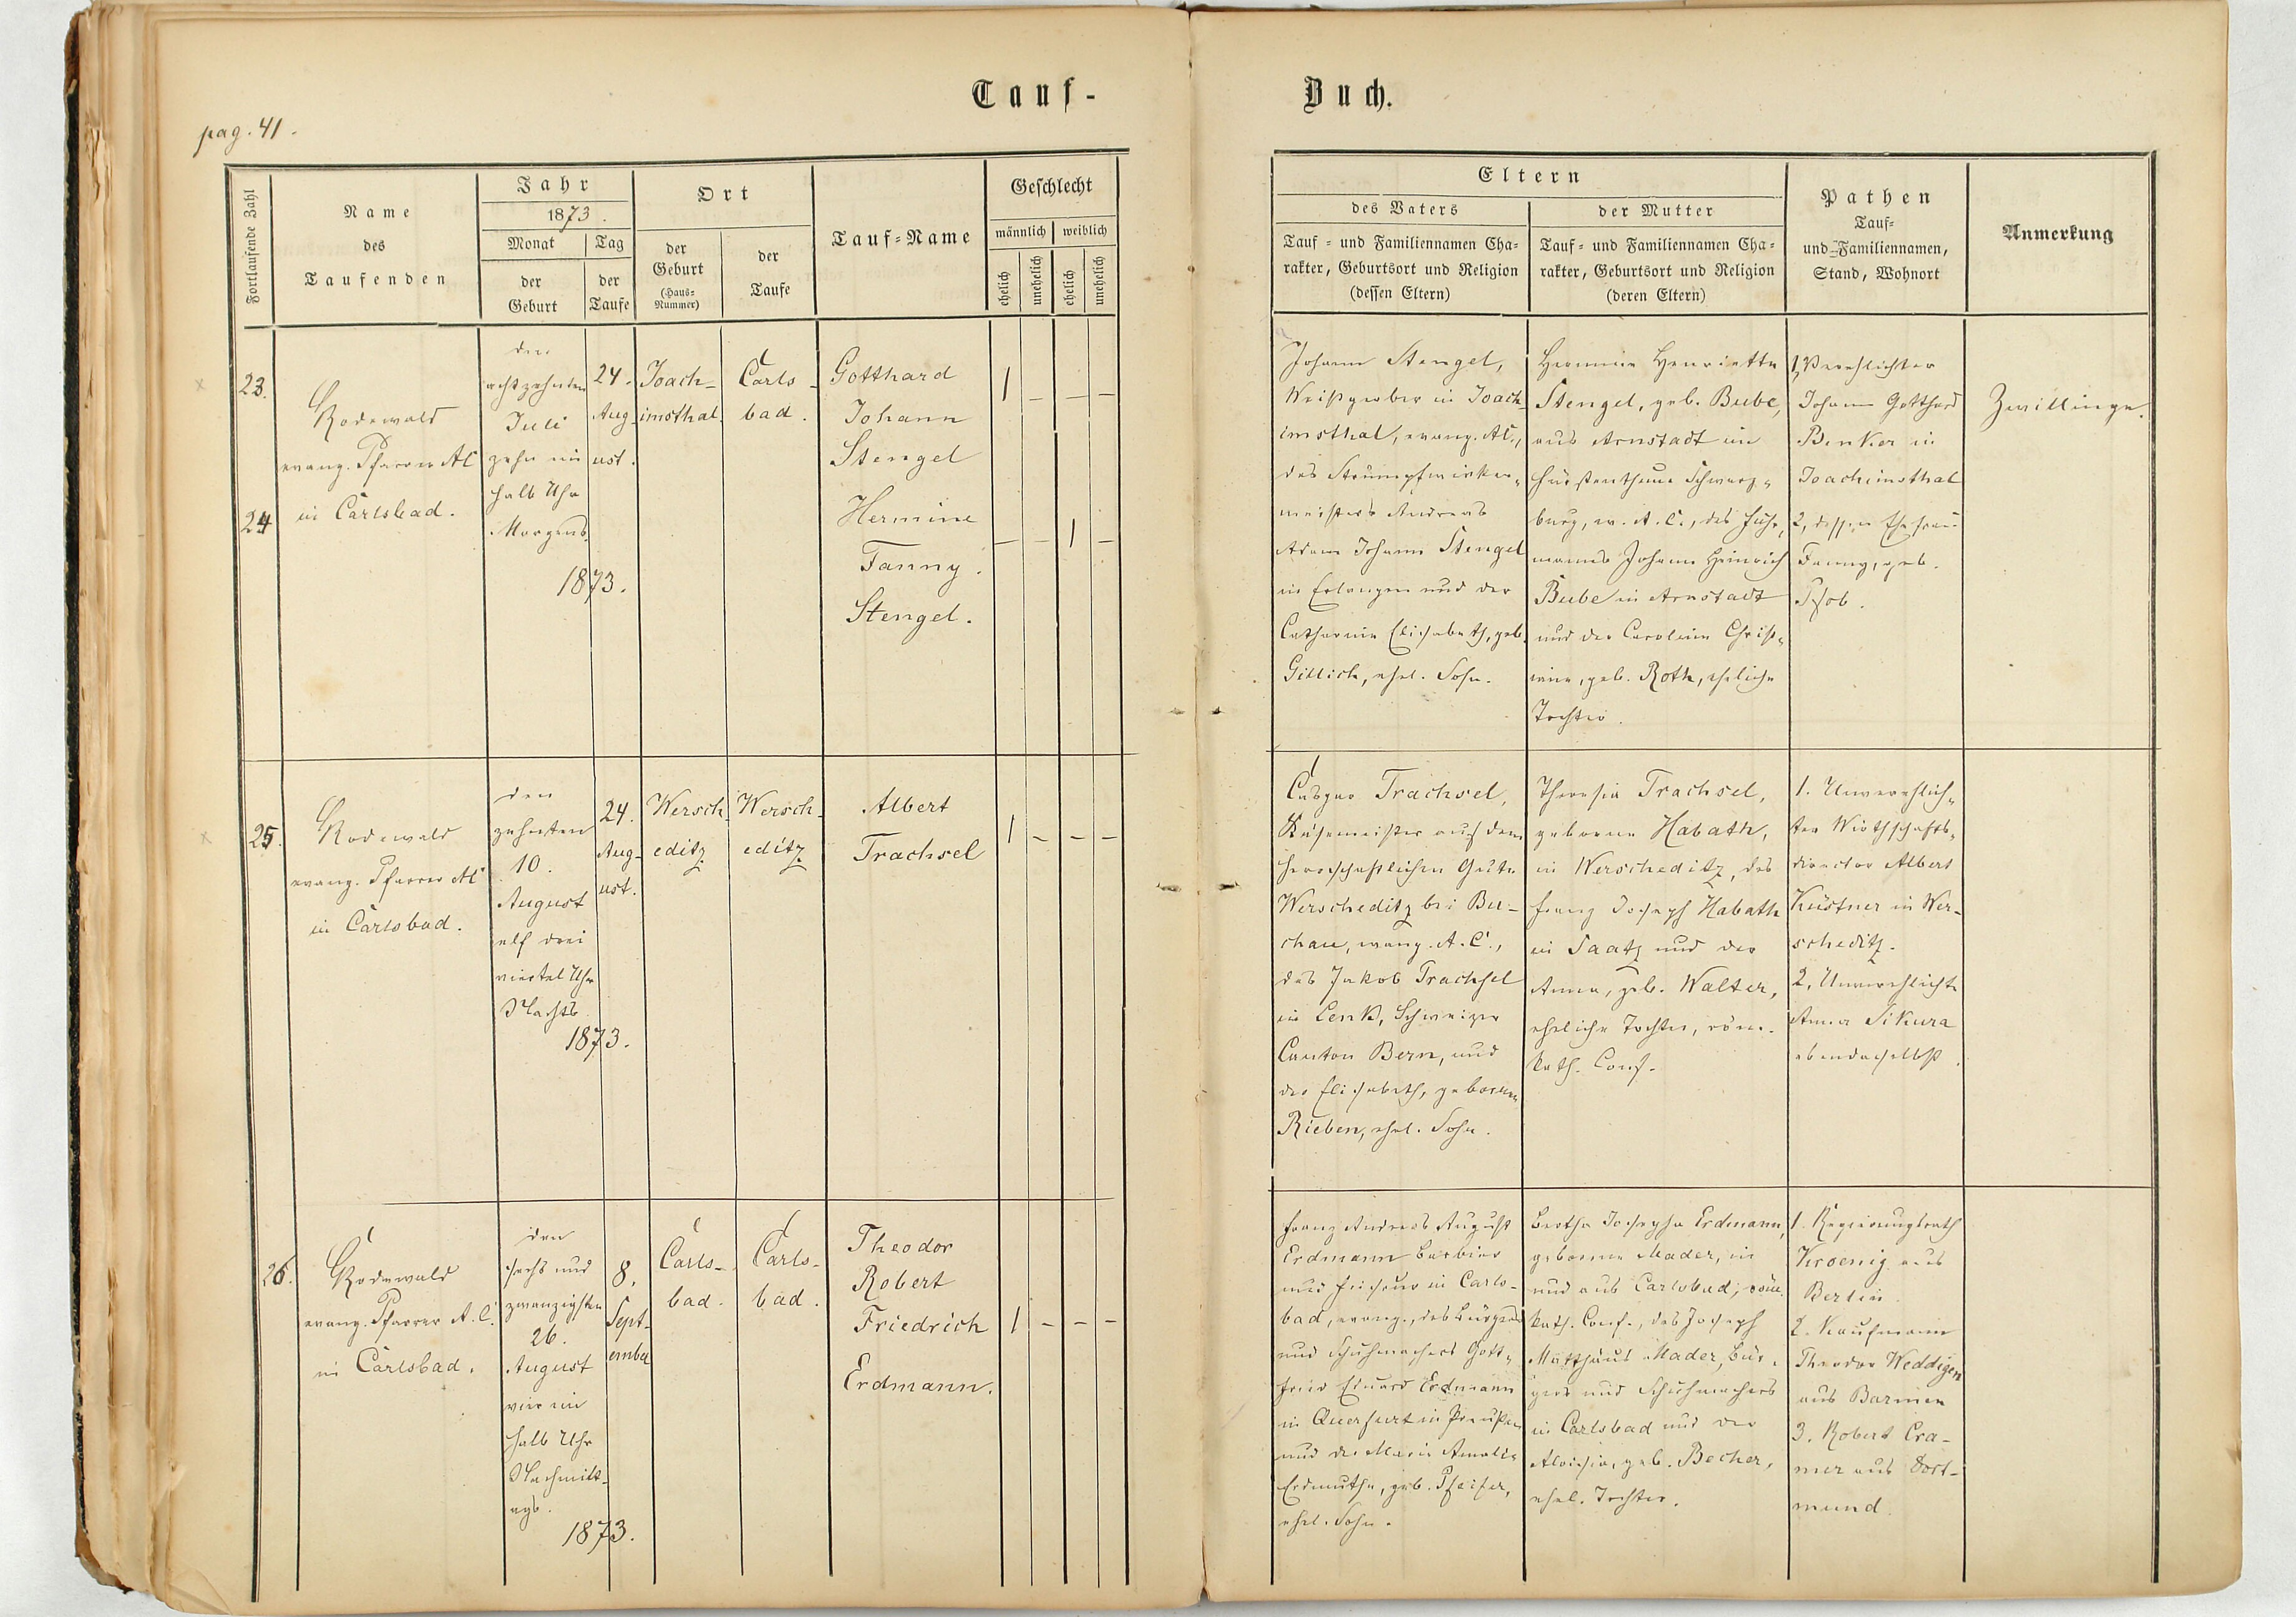 Tauf-
Buch.
pag. 41.
Fortlaufende Zahl
Name
des
Taufenden
Jahr
1873.
Monat
der
Geburt
Tag
der
Taufe
Ort
der
Geburt
(Haus-
Nummer)
der
Taufe
Tauf-Name
Geschlecht
männlich
weiblich
ehelich
unehelich
ehelich
unehelich
Eltern
des Vaters
Tauf- und Familiennamen Cha-
rakter, Geburtsort und Religion
(dessen Eltern)
der Mutter
Tauf- und Familiennamen Cha-
rakter, Geburtsort und Religion
(deren Eltern)
Pathen
Tauf-
und Familiennamen,
Stand, Wohnort
Anmerkung
23.
24
Rodewald
evang. Pfarrer AC
in Carlsbad.
den
achtzehnten
Juli
zehn ein
halb Uhr
Morgens.
1873.
24.
Aug-
ust.
Joach-
imsthal.
Carls-
bad.
Gotthard
Johann
Stengel
Hermine
Fanny.
Stengel.
1 - - -
- - 1 -
Johann Stengel,
Weißgerber in Joach-
imsthal, evang. AC.,
des Strumpfwirker-
meisters Andreas
Adam Johann Stengel
in Erlangen und der
Catharina Elisabeth, geb.
Gillich, ehel. Sohn.
Hermine Henriette
Stengel, geb. Bube,
aus Arnstadt im
Fürstenthum Schwarz-
burg, ev. A. C., des Fuhr-
manns Johann Heinrich
Bube in Arnstadt
und der Caroline Christ-
iane, geb. Roth, eheliche
Tochter.
1, Verehlichter
Johann Gotthard
Benker in
Joachimsthal
2, dessen Ehefrau
Fanny, geb.
Zwillinge.
25.
Rodewald
evang. Pfarrer AC
in Carlsbad.
den
zehnten
10.
August
elf drei
viertel Uhr
Nachts.
1873.
24.
Aug-
ust.
Wersch-
editz
Wersch-
editz
Albert
Trachsel
1 - - -
Caspar Trachsel,
Käsemeister auf dem
herrschaftlichen Gute
Werscheditz bei Bu-
chau, evang. A. C.,
des Jakob Trachsel
in Lenk, Schweizer
Canton Bern, und
der Elisabeth, geborene
Rieben, ehel. Sohn.
Theresia Trachsel,
geborene Habath,
in Werscheditz, des
Franz Joseph Habath
in Saatz und der
Anna, geb. Walter,
eheliche Tochter, röm.
kath. Conf.
1. Unverehlich-
ter Wirthschafts-
director Albert
Küstner in Wer-
scheditz.
2, Unverehlichte
Anna Sikura
ebendaselbst.
26.
Rodewald
evang. Pfarrer A. C.
in Carlsbad.
den
sechs und
zwanzigsten
26.
August
vier ein
halb Uhr
Nachmitt-
ags.
1873.
8.
Sept-
ember
Carls-
bad.
Carls-
bad.
Theodor
Robert
Friedrich
Erdmann.
1 - - -
Franz Andreas August
Erdmann Barbier
und Friseur in Carls-
bad, evang., des Bürgers
und Schuhmachers Gott-
fried Eduard Erdmann
in Querfurt in Preußen
und der Marie Amalie
Erdmuthe, geb. Pfeifer,
ehel. Sohn.
Bertha Josepha Erdmann,
geborene Mader, in
und aus Carlsbad, röm.
kath. Conf., des Joseph
Matthäus Mader, Bür-
gers und Schuhmachers
in Carlsbad und der
Aloisia, geb. Becher,
ehel. Tochter.
1. Regierungsrath
Kroenig aus
Berlin.
2. Kaufmann
Theodor Weddigen
aus Barmen
3. Robert Cra-
mer aus Dort-
mund.